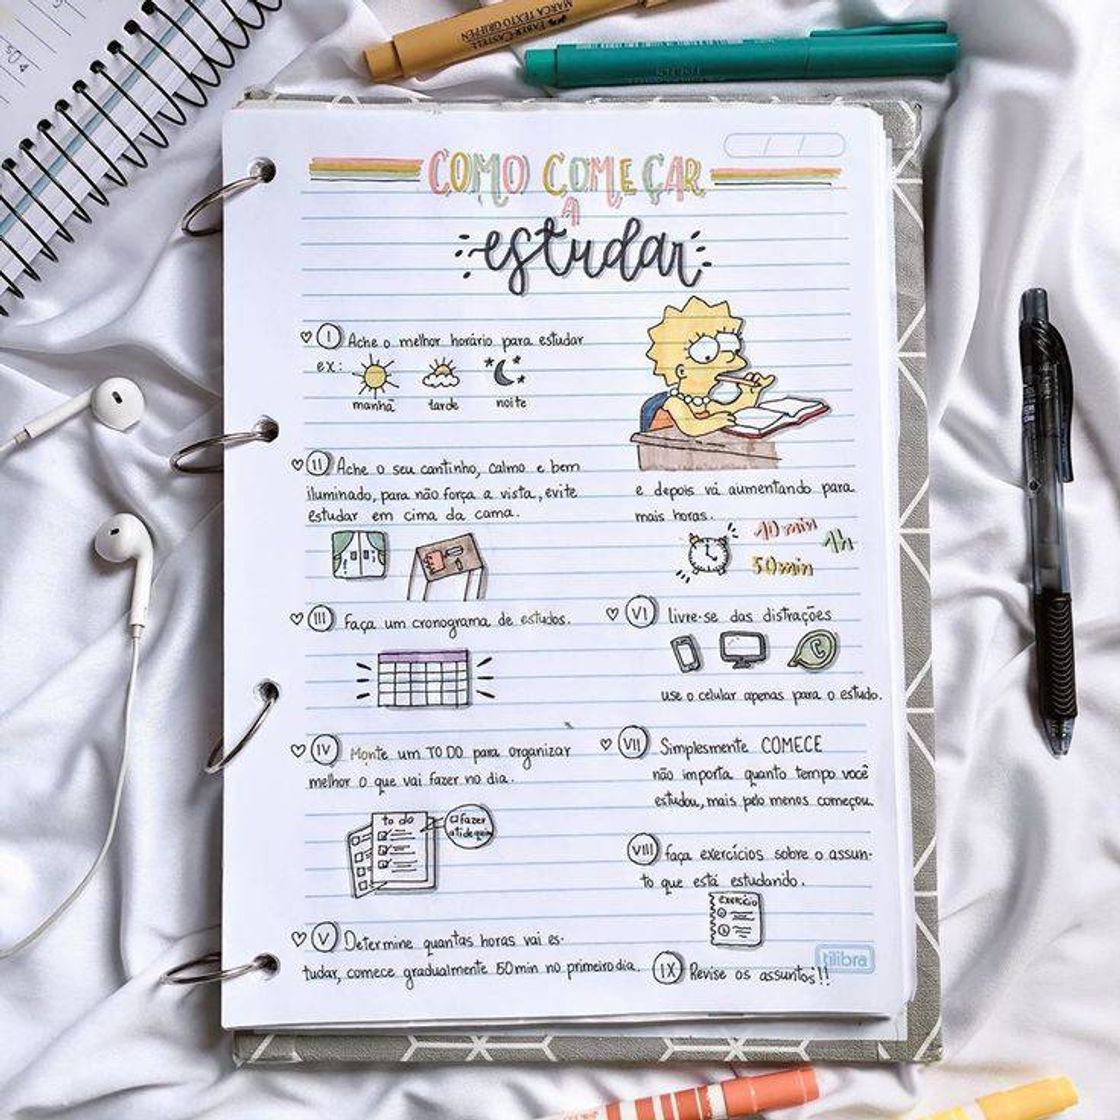 504
FABER-CASTELL
MARCA TEXTO GRIFFEN
COMO COMEÇAR
A
estudar
I Ache o melhor horário para estudar
ex:
manhã tarde noite
II Ache o seu cantinho, calmo e bem
iluminado, para não força a vista, evite
estudar em cima da cama.
III Faça um cronograma de estudos.
IV Monte um TO DO para organizar
melhor o que vai fazer no dia.
to do
fazer
V Determine quantas horas vai es-
tudar, comece gradualmente 50min no primeiro dia.
e depois vá aumentando para
mais horas.
1h
50min
VI livre-se das distrações
use o celular apenas para o estudo.
VII Simplesmente COMECE
não importa quanto tempo você
estudou, mais pelo menos começou.
VIII faça exercícios sobre o assun-
to que está estudando.
EXERCÍCIO
IX Revise os assuntos!!
tilibra